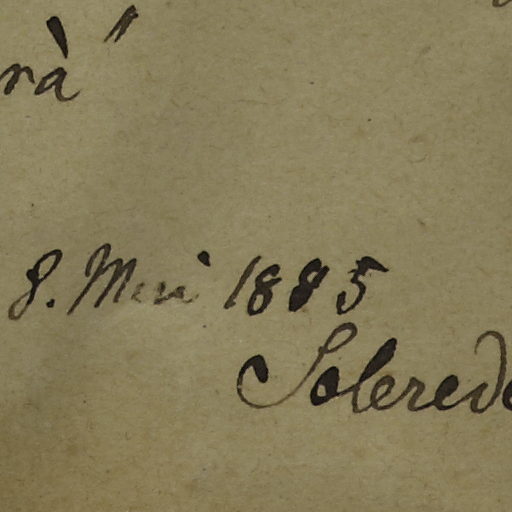 rà"
8. Mai 1885
Solered